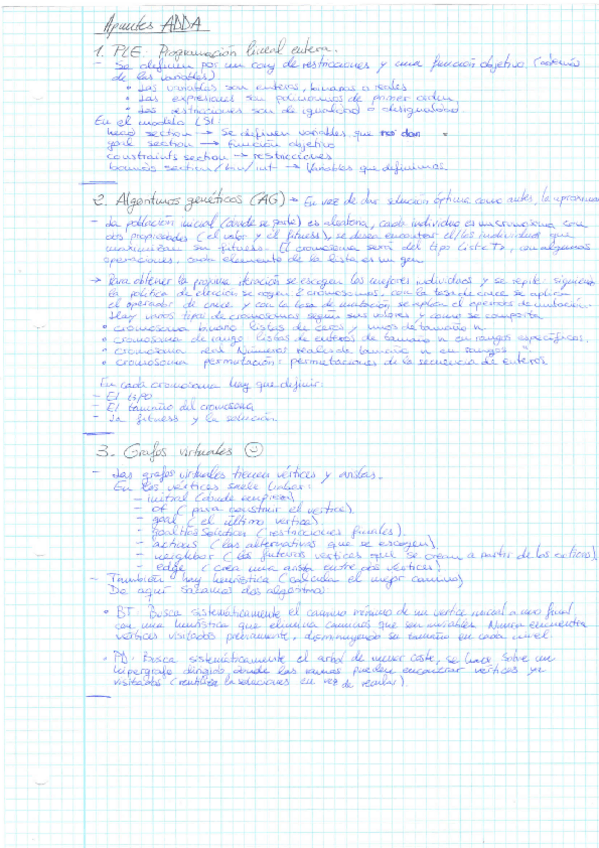 Apuntes ADDA
1. PLE. Programación lineal entera.
- Se definen por un conj de restricciones y una función objetivo (además
de las variables)
• Las variables son enteros, binarias o reales
• Las expresiones son polinomios de primer orden
• Las restricciones son de igualdad o desigualdad
En el modelo LSI:
head section → Se definen variables que no dan
goal section → Función objetivo
constraints section → restricciones
bounds section/bin/int → Variables que definimos
2. Algoritmos genéticos (AG) → En vez de dar solución óptima como antes, la aproximan
- La población inicial (donde se parte) es aleatoria, cada individuo es un cromosoma con
dos propiedades (el valor y el fitness), se desea encontrar el/los individuos que
maximizan su fitness. El cromosoma será del tipo List<T>, con algunas
operaciones, cada elemento de la lista es un gen
→ Para obtener la próxima iteración se escogen los mejores individuos y se repite: siguiendo
la política de elección se cogen 2 cromosomas, con la tasa de cruce se aplica
el operador de cruce y con la tasa de mutación se aplica el operador de mutación.
Hay varios tipos de cromosomas según sus valores y como se comporta
• cromosoma binario: listas de ceros y unos de tamaño n.
• cromosoma de rango: Listas de enteros de tamaño n en rangos específicos.
• cromosoma real: Números reales de tamaño n en rangos "
• cromosoma permutación: permutaciones de la secuencia de enteros
En cada cromosoma hay que definir:
- El tipo
- El tamaño del cromosoma
- La fitness y la solución
3. Grafos virtuales
- Los grafos virtuales tienen vértices y aristas.
En los vértices suele haber:
- initial (donde empiezan)
- of (para construir el vértice)
- goal (el último vértice)
- goalHasSolution (restricciones finales)
- actions (las alternativas que se escogen)
- neighbor (los futuros vértices que se crean a partir de las actions)
- edge (crea una arista entre dos vértices)
- También hay heurística (calcular el mejor camino)
De aquí sacamos dos algoritmos
• BT: Busca sistemáticamente el camino mínimo de un vértice inicial a uno final
con una heurística que elimina caminos que son inviables. Nunca encuentra
vértices visitados previamente, disminuyendo su tamaño en cada nivel.
• PD: Busca sistemáticamente el árbol de menor coste, se hace sobre un
hipergrafo dirigido donde las ramas pueden encontrar vértices ya
visitados (reutiliza la soluciones en vez de